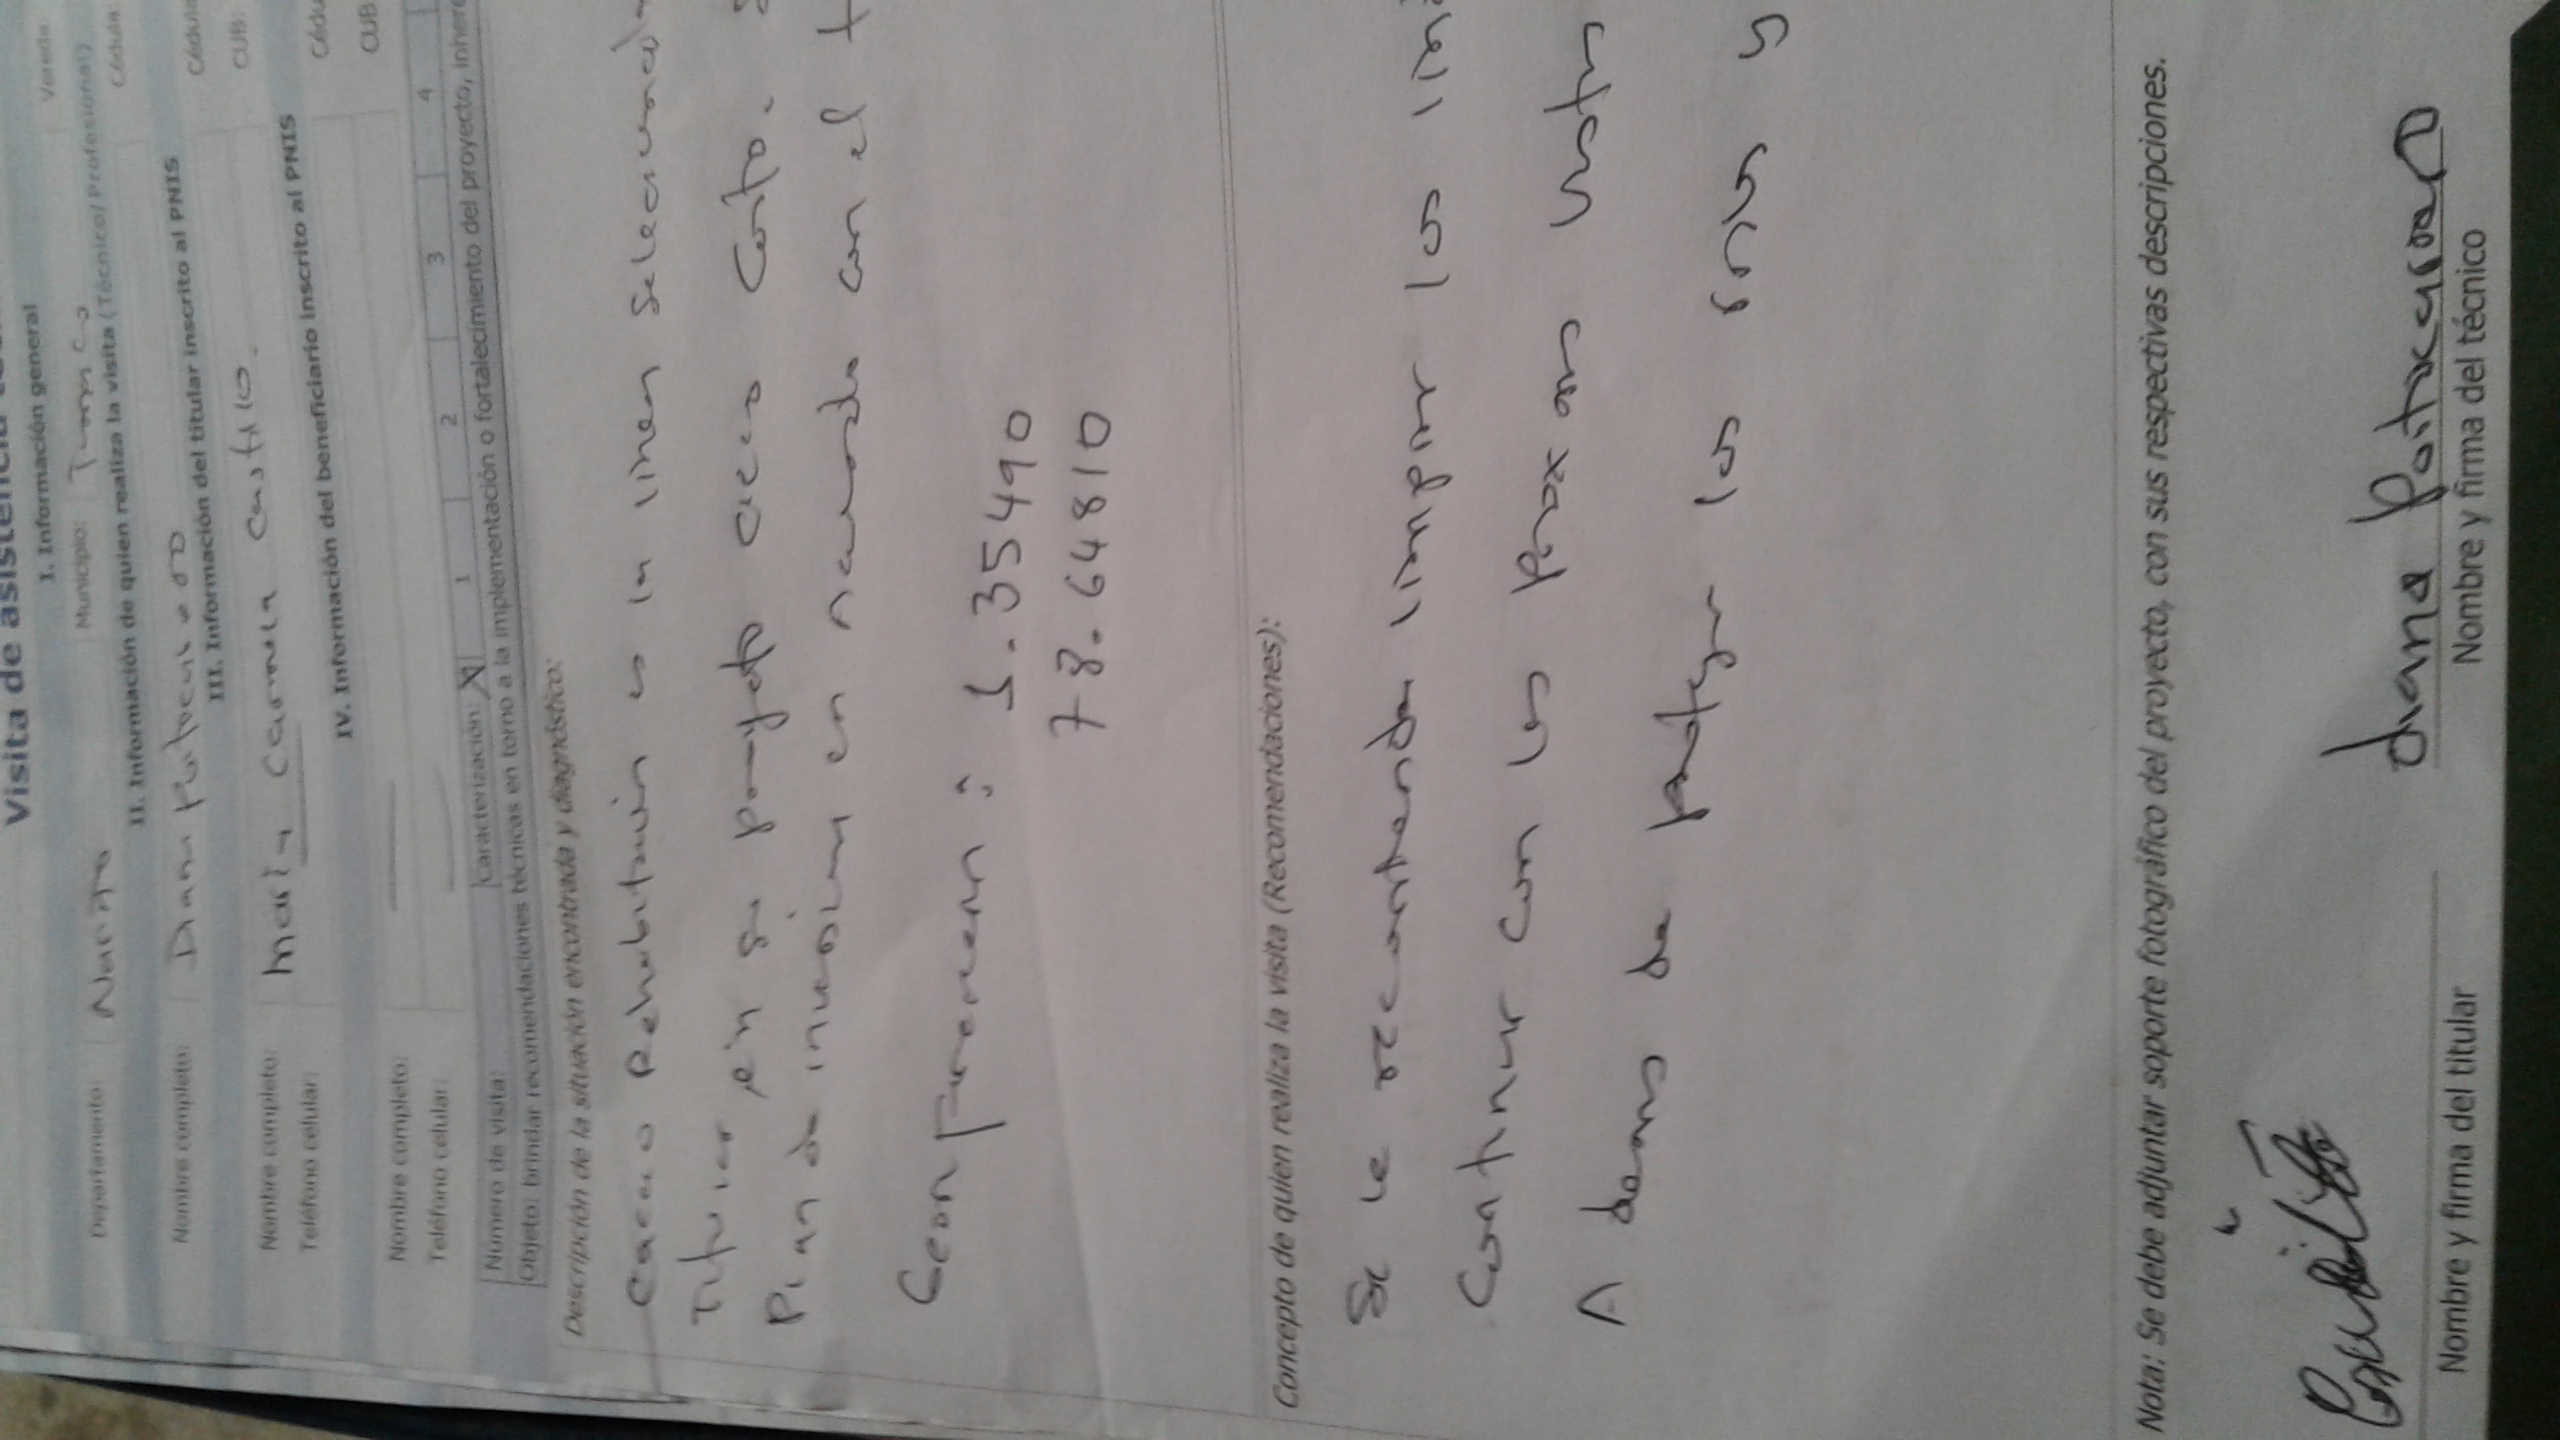 Visita de asistencia
I. Información general
Departamento: Nariño Municipio: Tumaco Vereda:
II. Información de quien realiza la visita (Técnico/Profesional)
Nombre completo: Diana Portocarrero Cédula:
III. Información del titular inscrito al PNIS
Nombre completo: María Carmela Castillo. Cédula
Teléfono celular: CUB:
IV. Información del beneficiario inscrito al PNIS
Nombre completo: Cédu
Teléfono celular: CUB
Número de visita: Caracterización: X 1 2 3 4
Objeto: brindar recomendaciones técnicas en torno a la implementación o fortalecimiento del proyecto, inhere
Descripción de la situación encontrada y diagnóstico:
cacao Rehabilitación es la linea seleccionada
Titular en su proyecto ciclo Corto.
Plan de inversión en acuerdo con el t
Georeferencia: 1.35490
78.64810
Concepto de quien realiza la visita (Recomendaciones):
Se le recomienda limpiar los
Continuar con las Proximas
A demas de proteger los
Nota: Se debe adjuntar soporte fotográfico del proyecto, con sus respectivas descripciones.
Diana Portocarrero
Nombre y firma del titular Nombre y firma del técnico